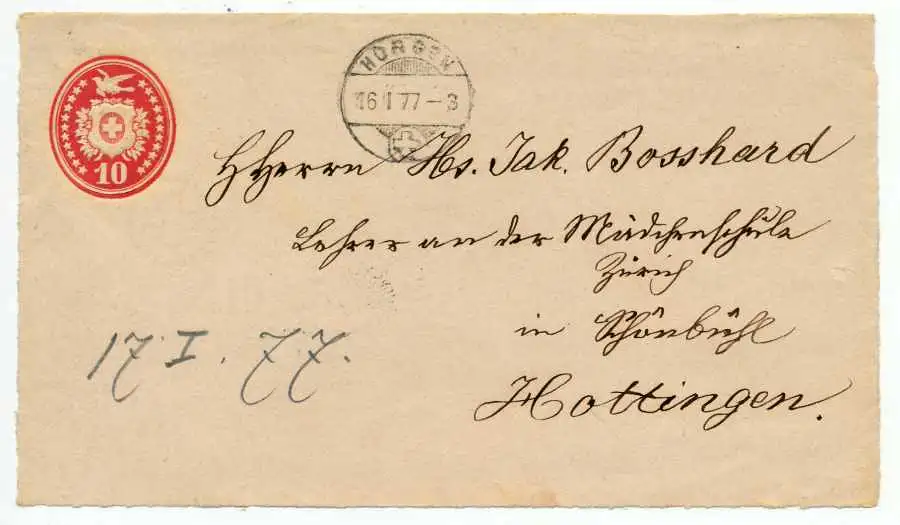 10
HORGEN
16 I 77 - 3
HHerrn Hs. Jak. Bosshard
Lehrer an der Mädchenschule
Zürich
in Schönbühl
Hottingen.
17. I. 77.